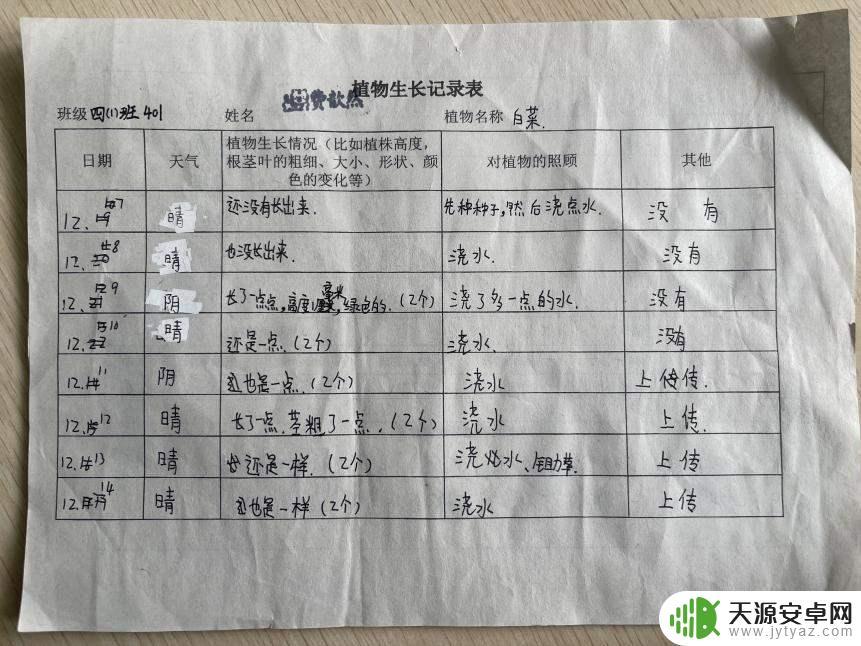 植物生长记录表
班级 四(1)班 401 姓名 费歆然 植物名称 白菜.
日期 天气 植物生长情况（比如植株高度，根茎叶的粗细、大小、形状、颜色的变化等） 对植物的照顾 其他
12. 7 晴 还没有长出来. 先种种子，然后浇点水. 没有
12. 8 晴 也没长出来. 浇水. 没有
12. 9 阴 长了一点点，高度1毫米，绿色的.（2个） 浇了多一点的水. 没有
12. 10 晴 还是一点.（2个） 浇水. 没有
12. 11 阴 也是一点.（2个） 浇水 上传.
12. 12 晴 长了一点，茎粗了一点.（2个） 浇水 上传.
12. 13 晴 还是一样.（2个） 浇水、锄草. 上传
12. 14 晴 也是一样（2个） 浇水 上传
天源安卓网
www.jytyaz.com